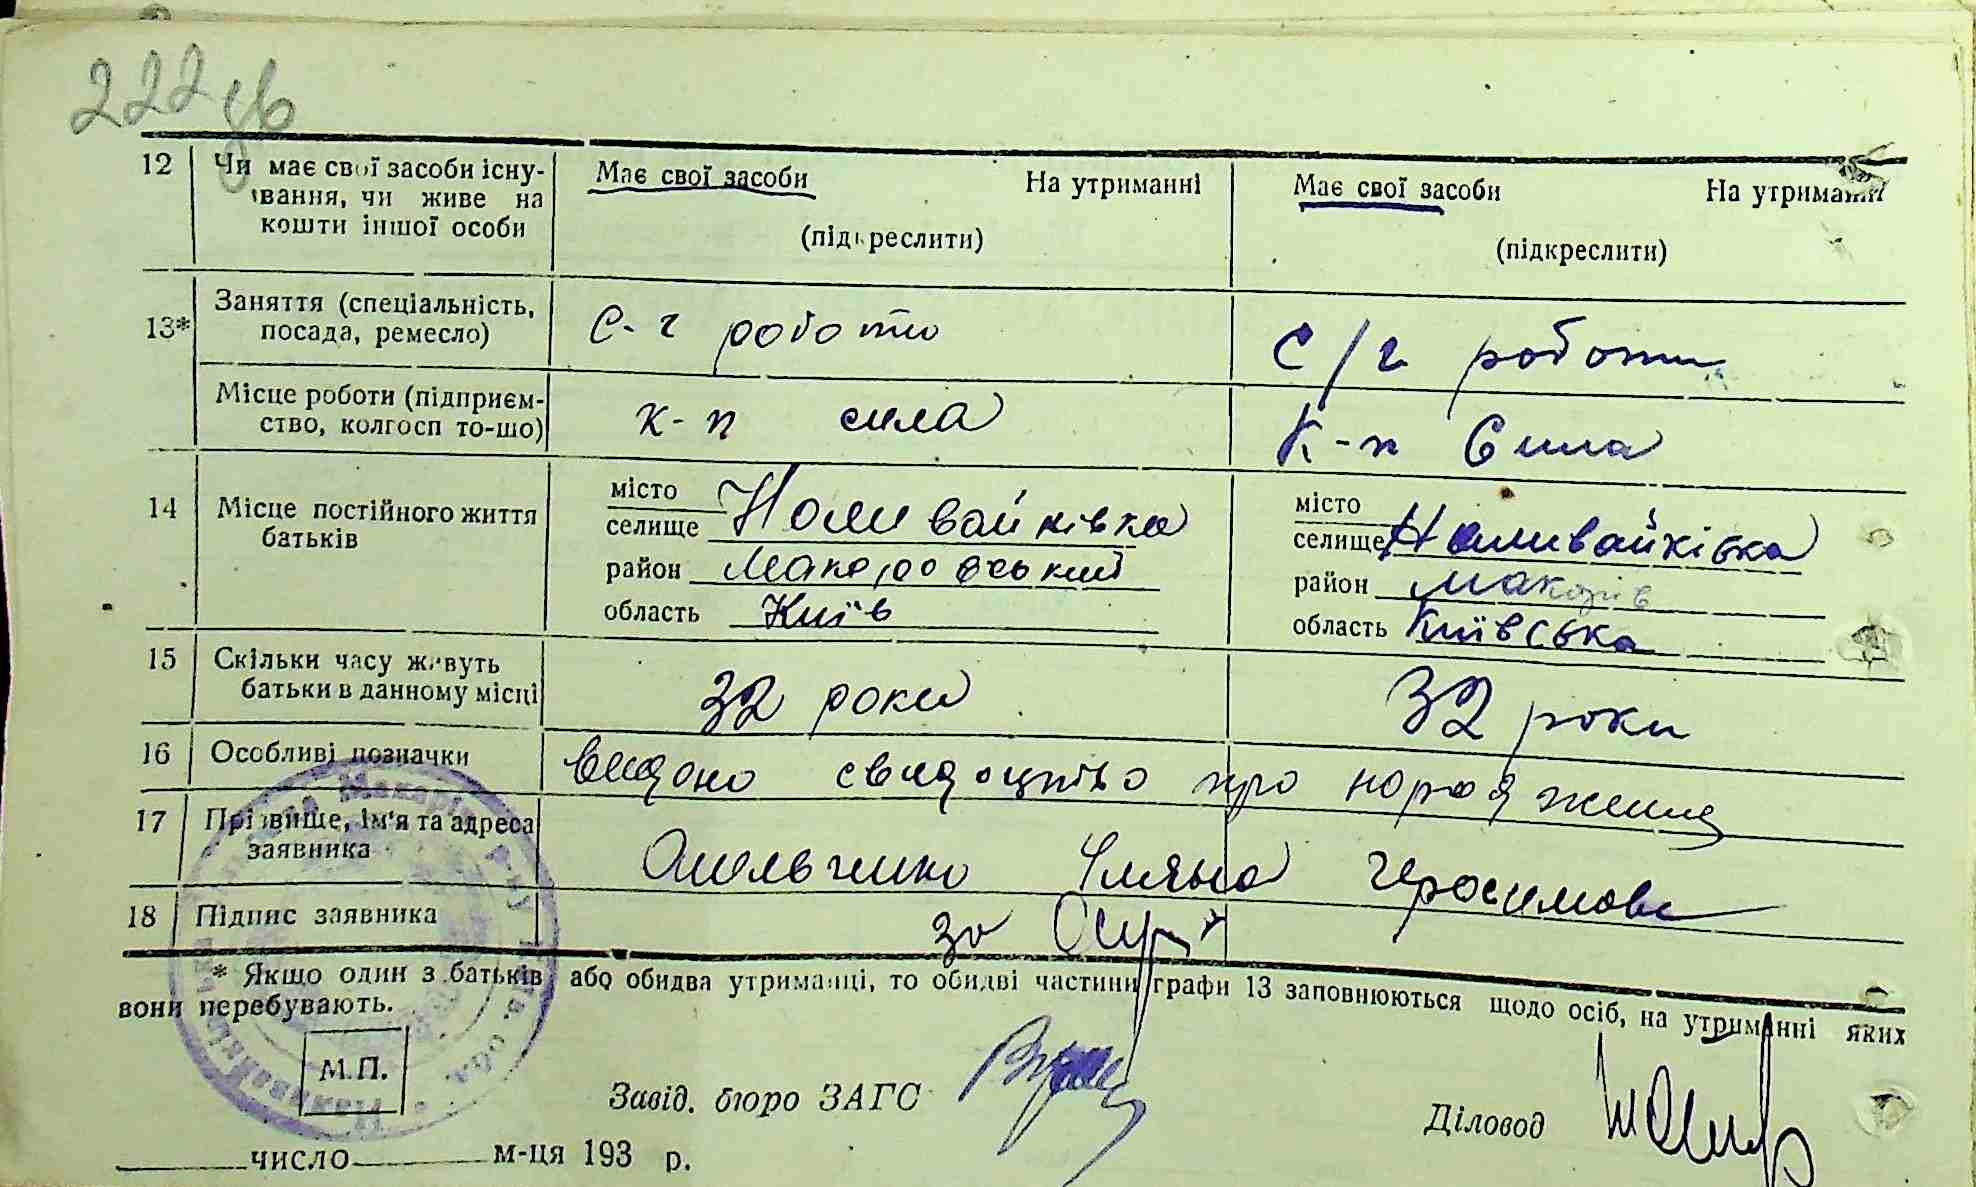 222 зв
12 Чи має свої засоби існу- Має свої засоби На утриманні Має свої засоби На утриманні
вання, чи живе на
кошти іншої особи (підкреслити) (підкреслити)
13* Заняття (спеціальність, с-г робота с/г робота
посада, ремесло)
Місце роботи (підприєм- к-п сила К-п Сила
ство, колгосп то-що)
14 Місце постійного життя місто місто
батьків селище Наливайківка селище Наливайківка
район Макаровський район Макарів
область Київ область Київська
15 Скільки часу живуть 32 роки 32 роки
батьки в данному місці
16 Особливі позначки видано свидоцтво про народження
17 Прізвище, ім'я та адреса Омельченко Уляна Герасимовна
заявника
18 Підпис заявника за
* Якщо один з батьків або обидва утриманці, то обидві частини графи 13 заповнюються щодо осіб, на утриманні яких
вони перебувають.
М.П.
Завід. бюро ЗАГС
Діловод
число м-ця 193 р.